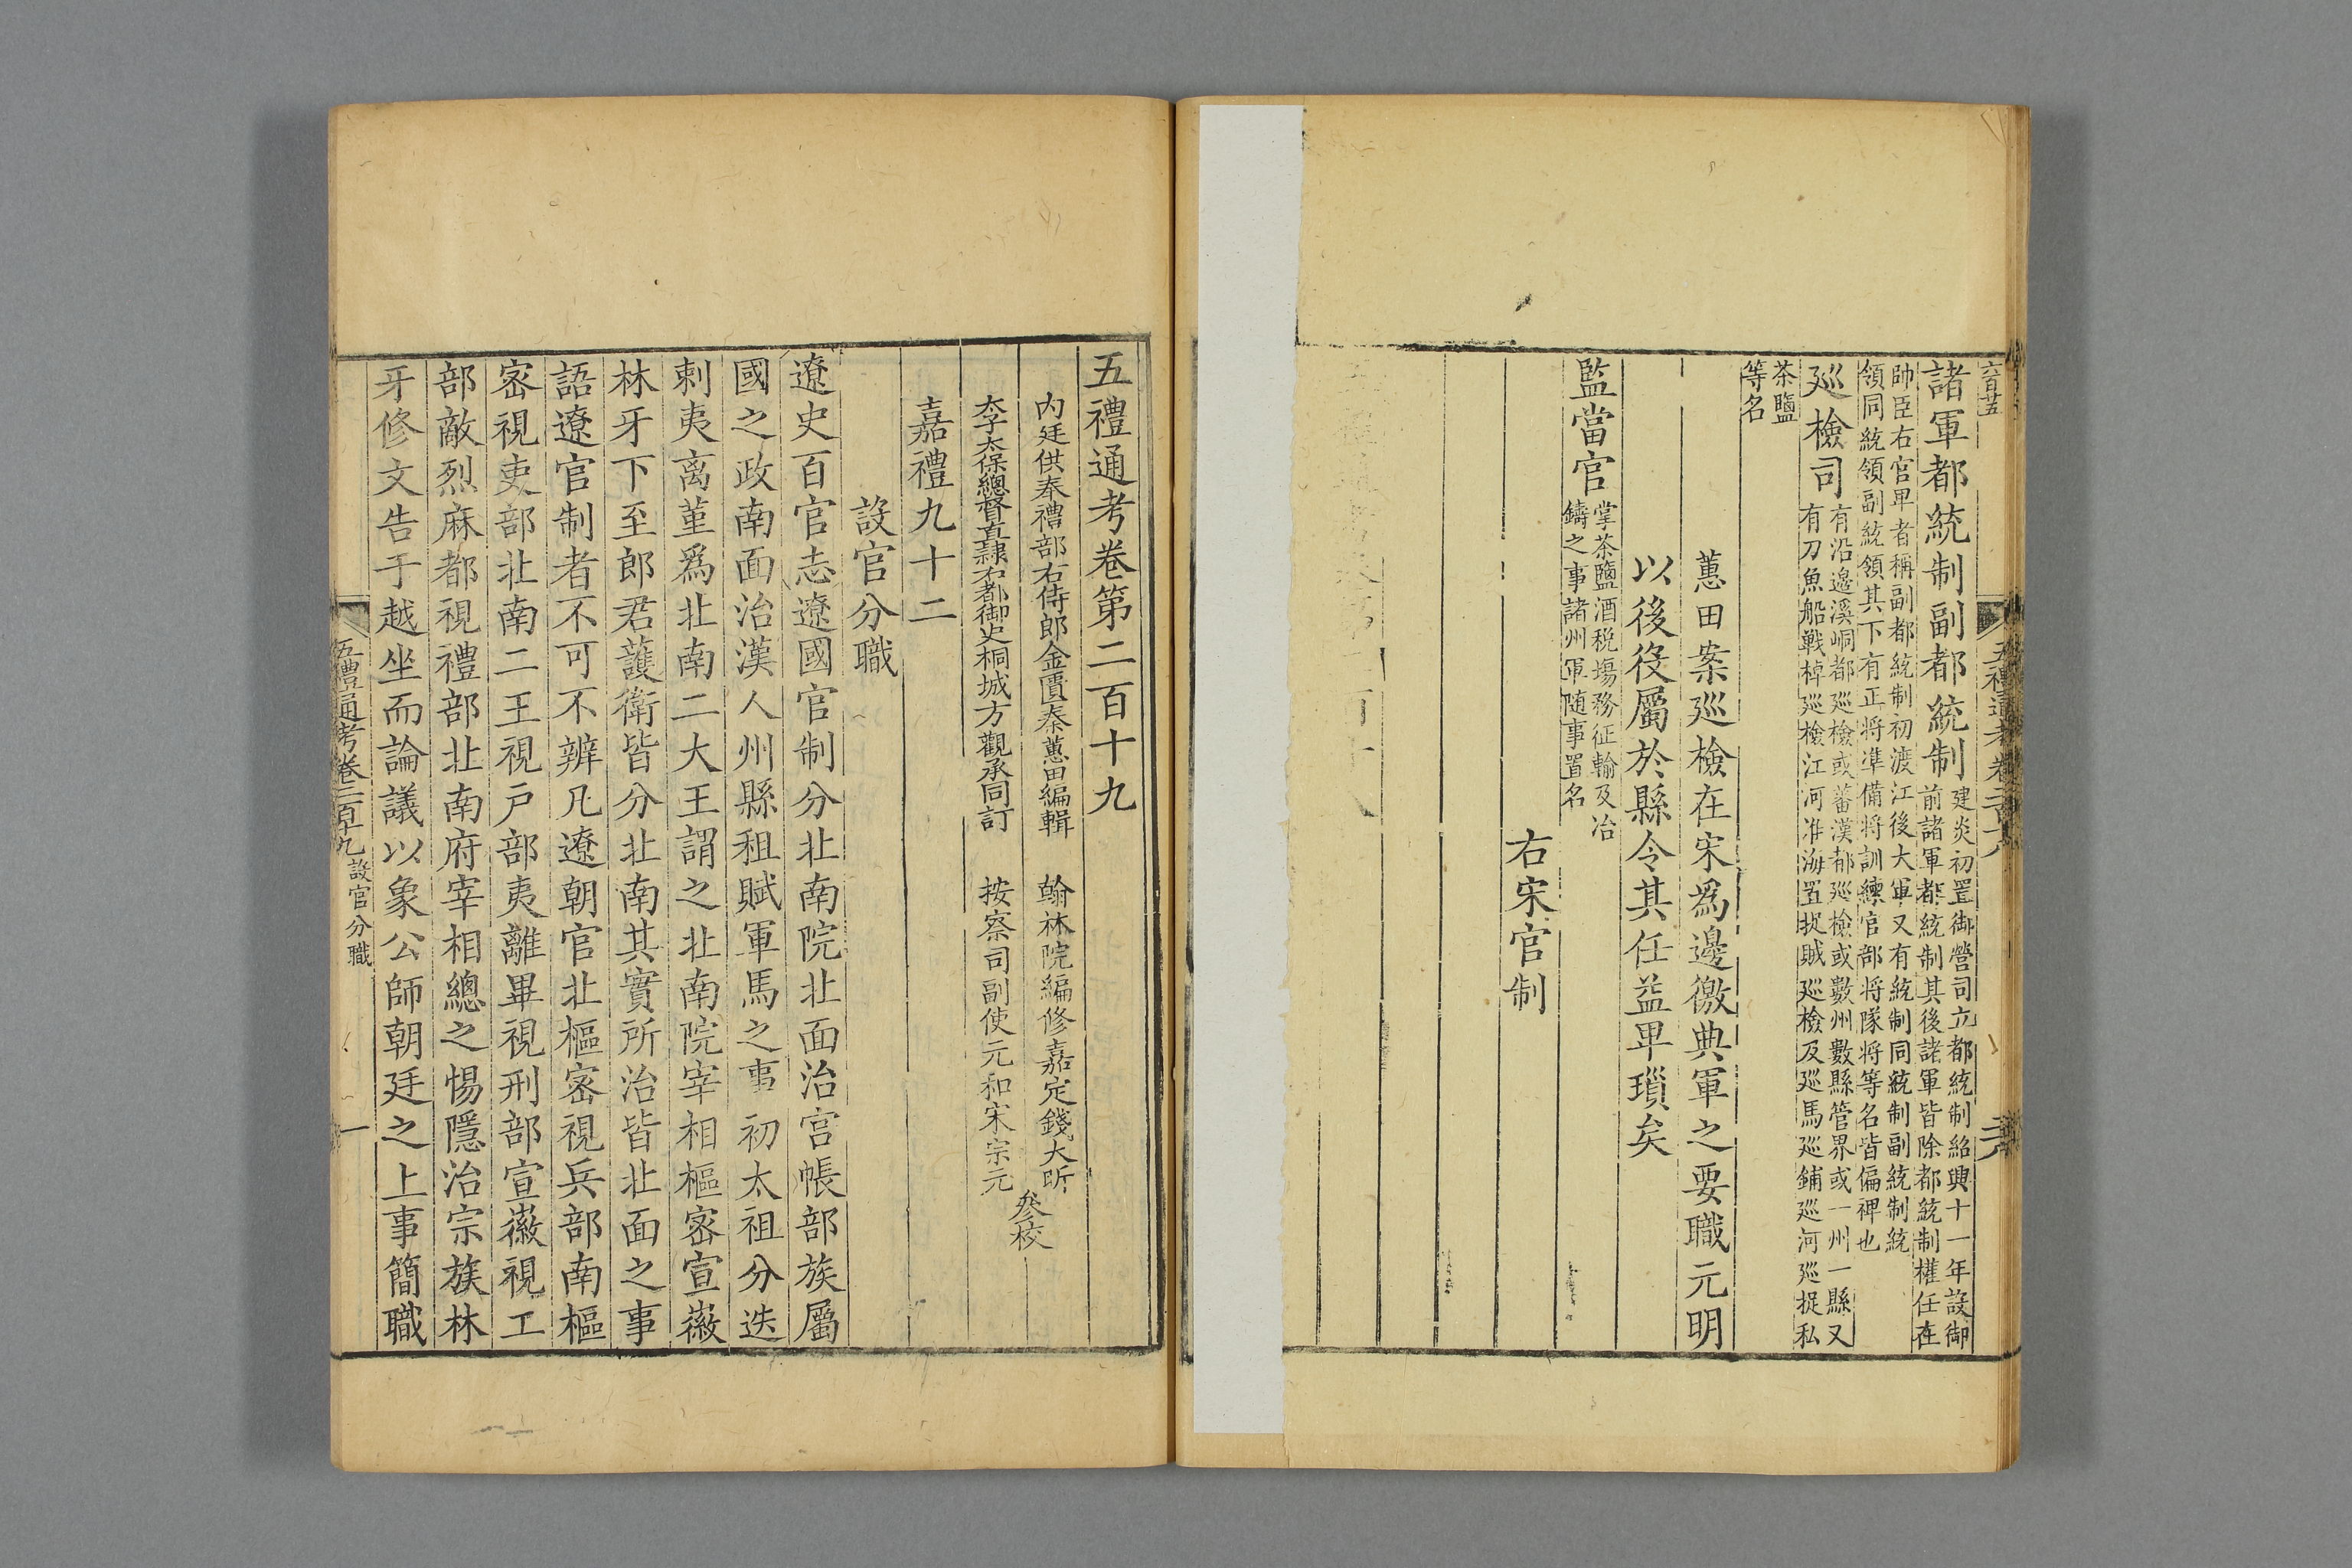 諸軍都統制副都統制建炎初置御營司立都統制紹興十一年設御
前諸軍都統制其後諸軍皆除都統制權任在
帥臣右官卑者稱副都統制初渡江後大軍又有統制同統制副統制統
領同統領副統領其下有正將準備將訓練官部將隊將等名皆偏裨也
廵檢司有沿邊溪峒都廵檢或蕃漢都廵檢或數州數縣管界或一州一縣又
有刀魚船戰棹廵檢江河淮海置捉賊廵檢及廵馬廵鋪廵河廵捉私
茶鹽
等名
蕙田案廵檢在宋爲邊徼典軍之要職元明
以後役屬於縣令其任益卑瑣矣
監當官掌茶鹽酒税塲務征輸及冶
鑄之事諸州軍随事置名
右宋官制
五禮通考卷第二百十九
内廷供奉禮部右侍郎金匱秦蕙田編輯 翰林院編修嘉定錢大昕
太子太保總督直隷右都御史桐城方觀承同訂 按察司副使元和宋宗元
叅校
嘉禮九十二
設官分職
遼史百官志遼國官制分北南院北面治宫帳部族屬
國之政南面治漢人州縣租賦軍馬之事初太祖分迭
剌夷离堇爲北南二大王謂之北南院宰相樞密宣徽
林牙下至郎君護衛皆分北南其實所治皆北面之事
語遼官制者不可不辨凡遼朝官北樞密視兵部南樞
密視吏部北南二王視戸部夷離畢視刑部宣徽視工
部敵烈麻都視禮部北南府宰相總之惕隱治宗族林
牙修文告于越坐而論議以象公師朝廷之上事簡職
五禮通考卷二百十九 設官分職 一